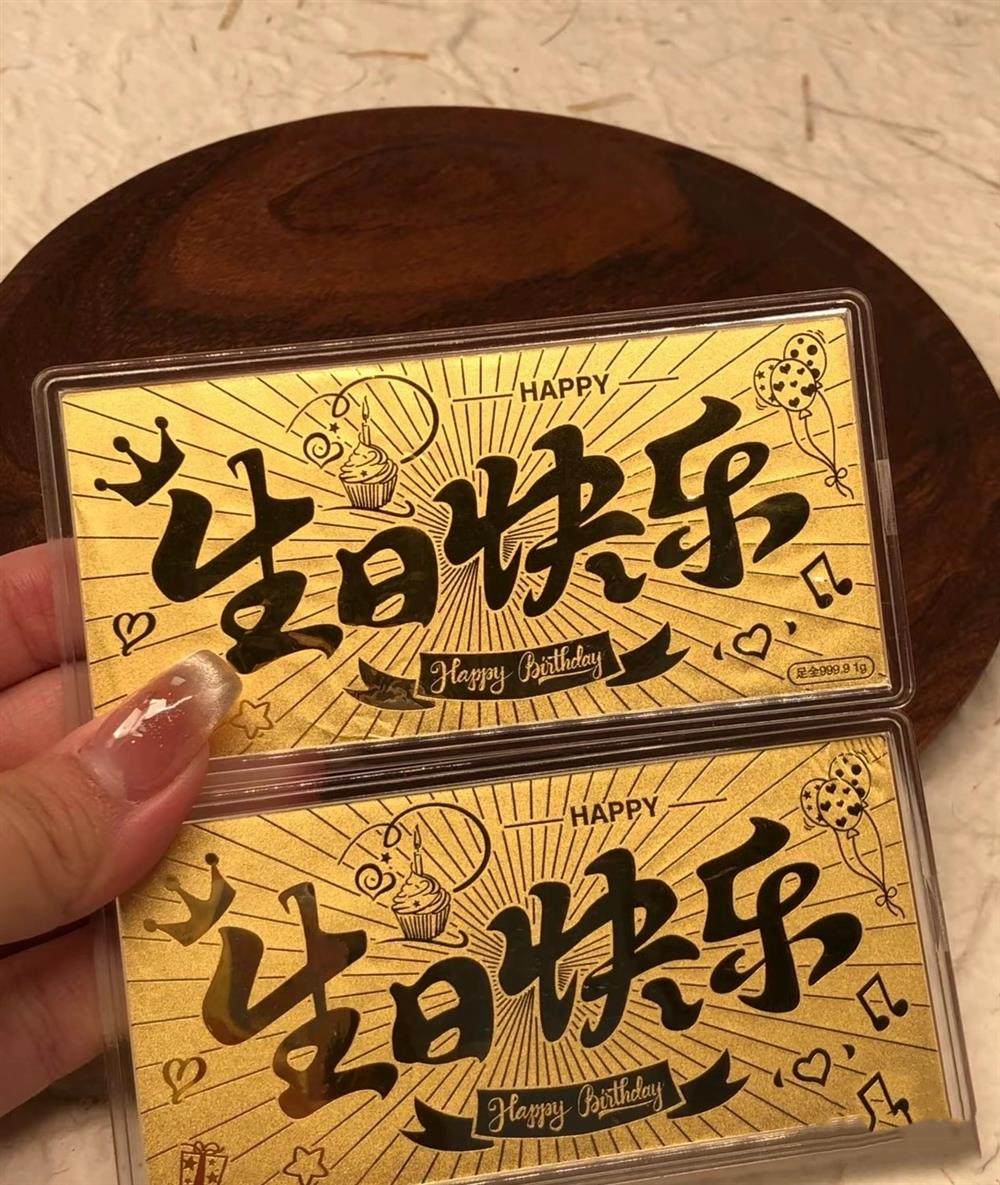 HAPPY
生日快乐
Happy Birthday
足金999.9 1g
HAPPY
生日快乐
Happy Birthday